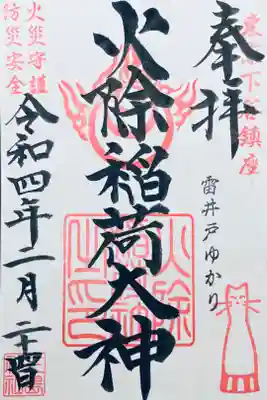 奉拝
雷井戸ゆかり
火除稲荷大神
火災守護
防災安全
令和四年二月二十四日